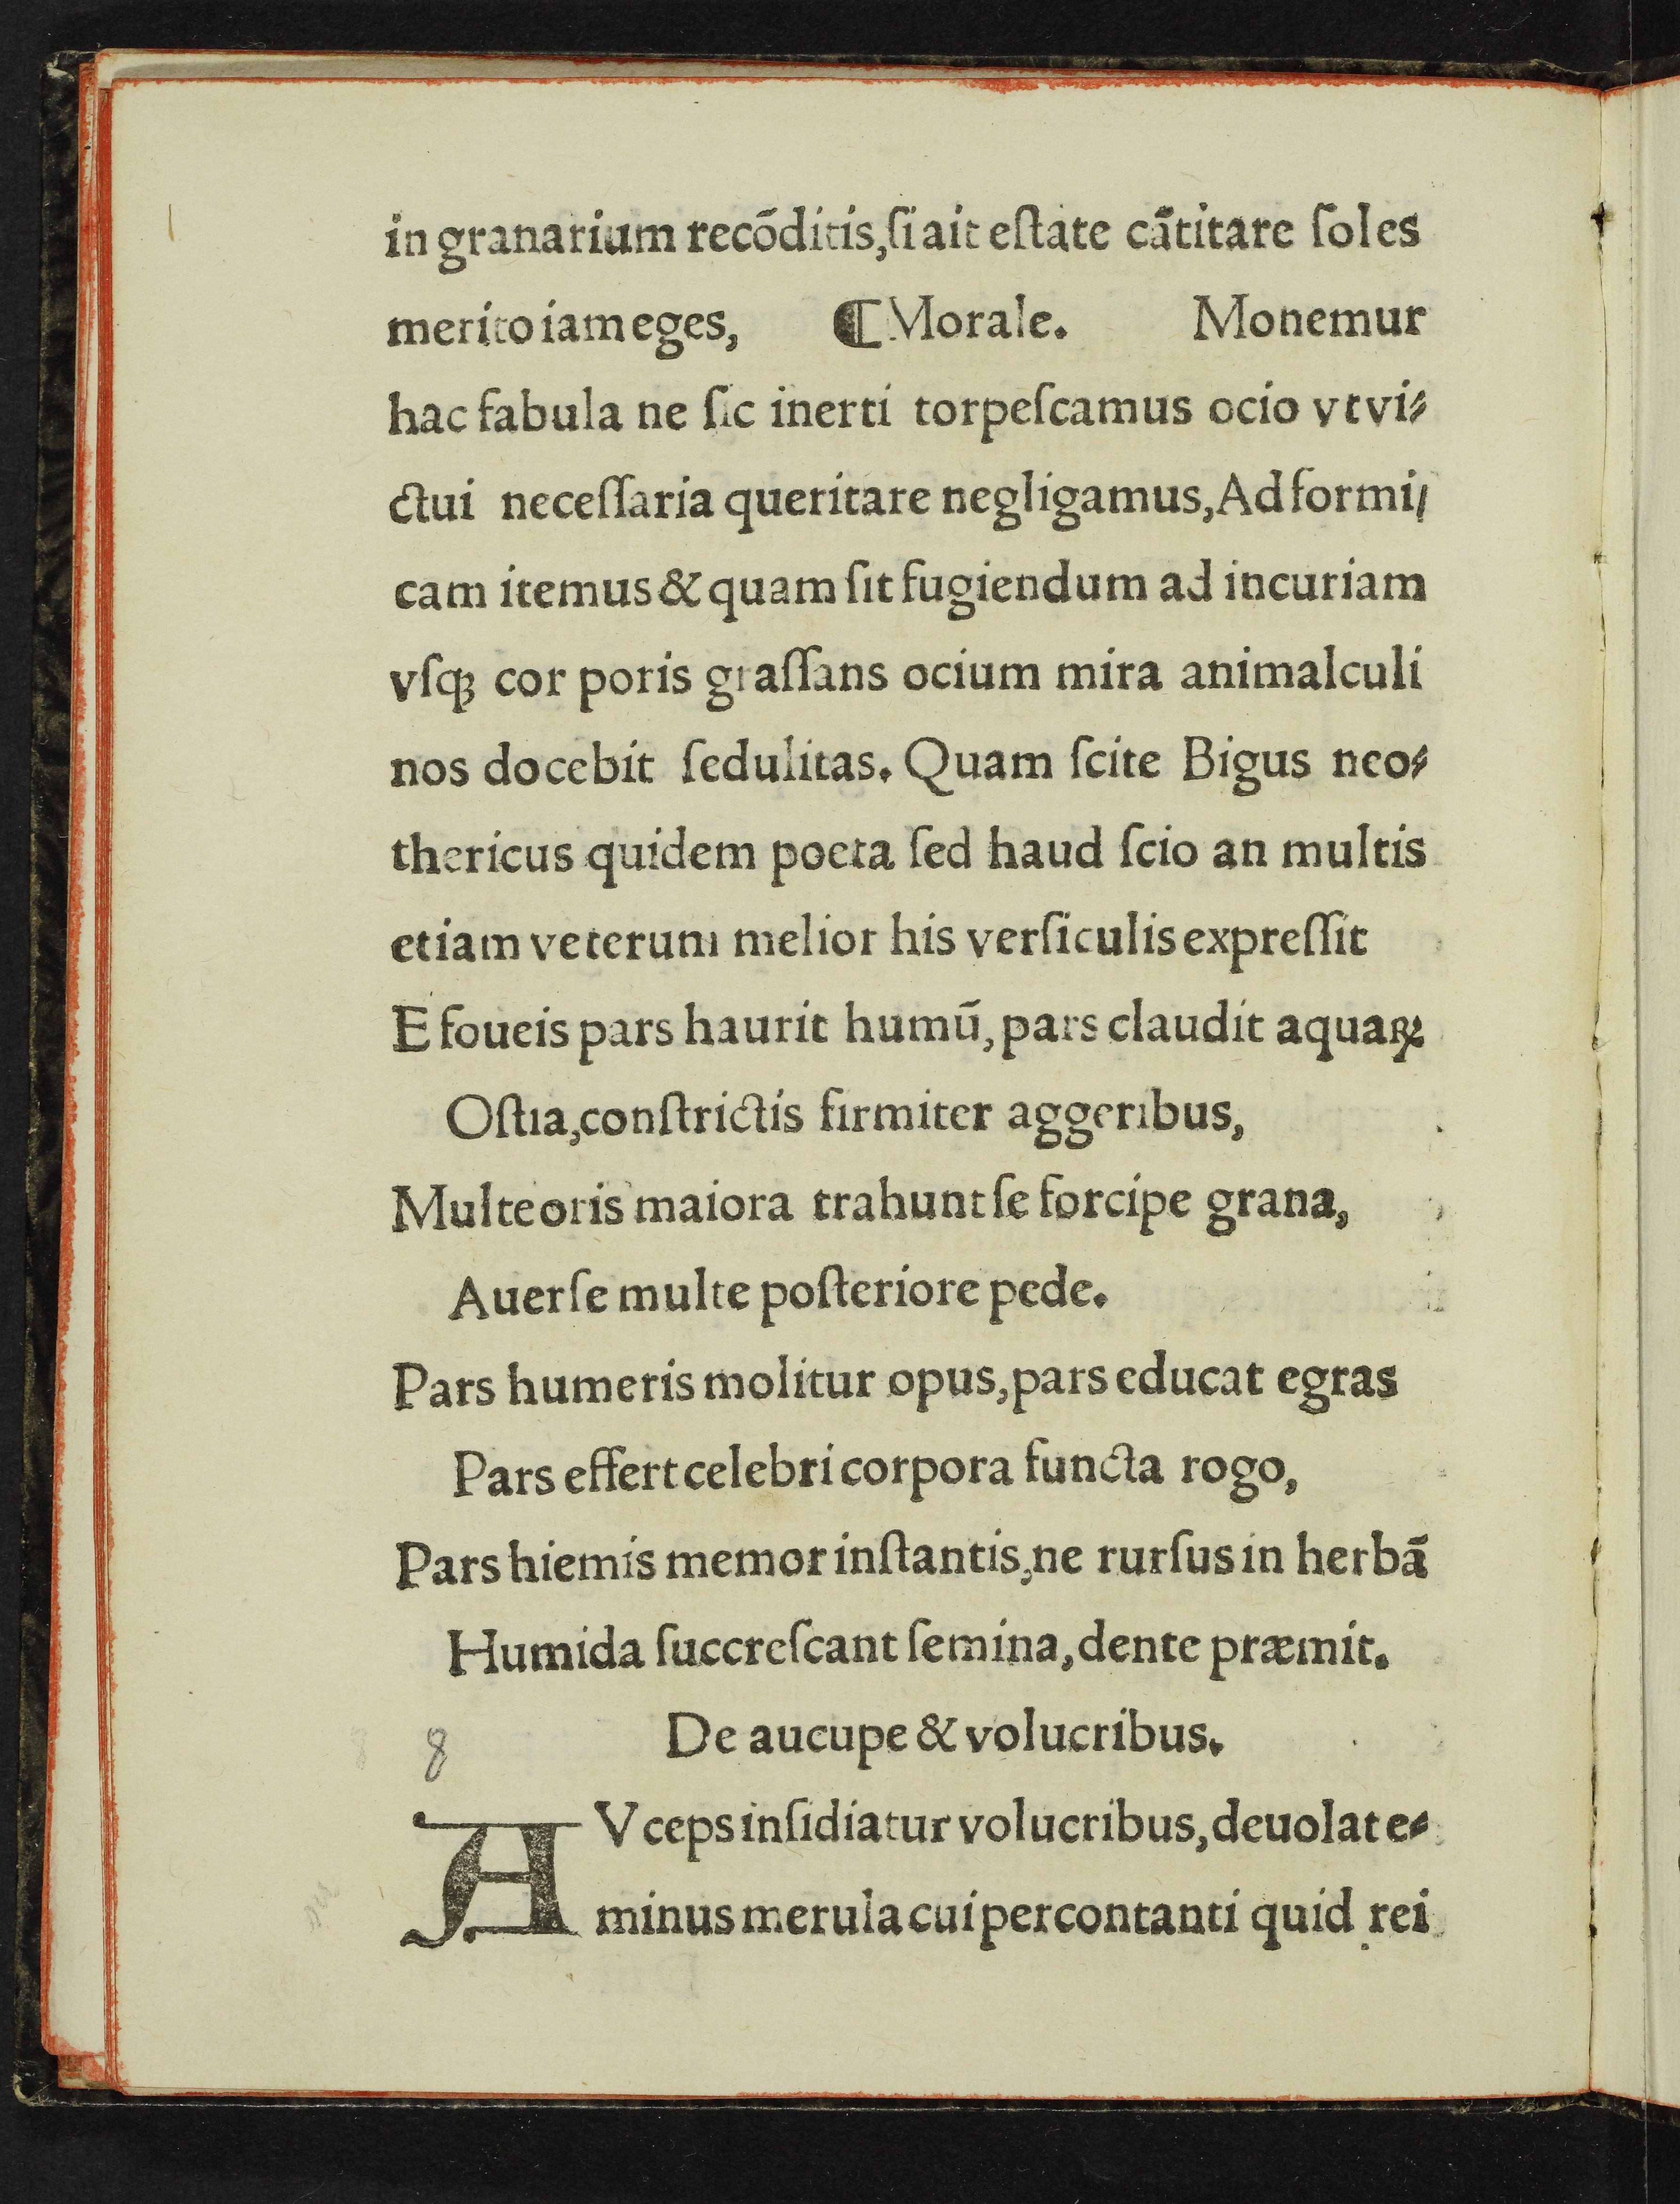 in granarium recõditis, ſi ait eſtate cãtitare ſoles
merito iam eges, ⸿ Morale. Monemur
hac fabula ne ſic inerti torpeſcamus ocio vt vi⸗
ctui neceſſaria queritare negligamus, Ad formi/
cam itemus & quam ſit fugiendum ad incuriam
vſqꝫ cor poris graſſans ocium mira animalculi
nos docebit ſedulitas. Quam ſcite Bigus neo⸗
thericus quidem poeta ſed haud ſcio an multis
etiam veterum melior his verſiculis expreſſit
E foueis pars haurit humũ, pars claudit aquaꝝ
Oſtia, conſtrictis firmiter aggeribus,
Multe oris maiora trahunt ſe forcipe grana,
Auerſe multe poſteriore pede.
Pars humeris molitur opus, pars educat egras
Pars effert celebri corpora functa rogo,
Pars hiemis memor inſtantis, ne rurſus in herbã
Humida ſuccreſcant ſemina, dente præmit.
8 De aucupe & volucribus.
AVceps inſidiatur volucribus, deuolat e⸗
minus merula cui percontanti quid rei